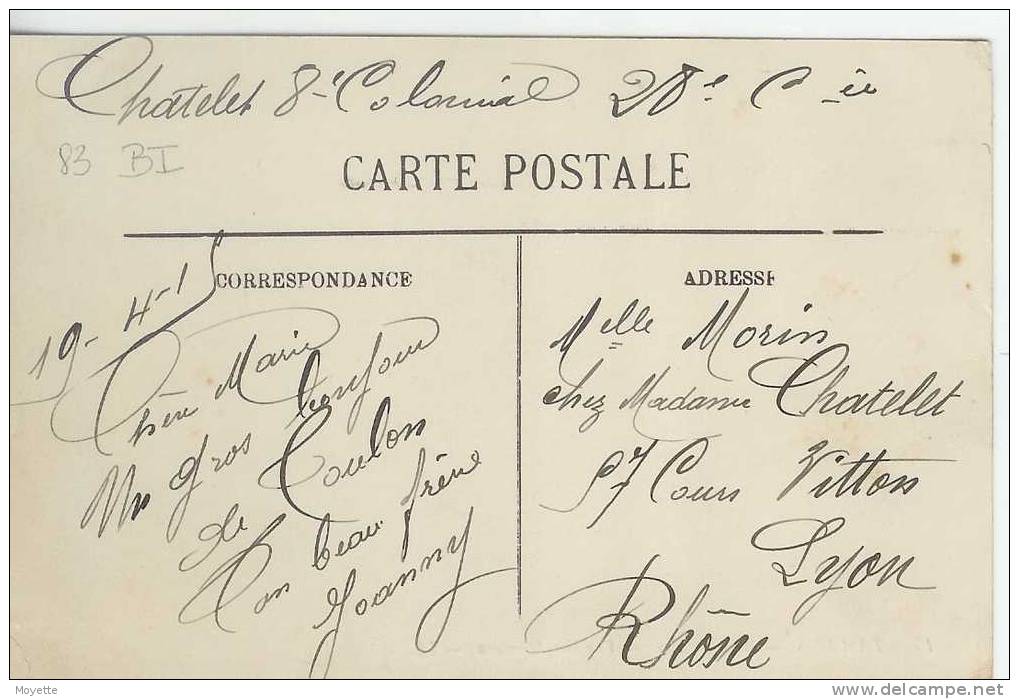 Chatelet 8e Colonial 28e Cie
83 BI
CARTE POSTALE
19-4-15
CORRESPONDANCE
Chère Marie
Un gros bonjour
de Toulon
Ton beau frère
Joanny
ADRESSE
Melle Morin
chez Madame Chatelet
57 Cours Vitton
Lyon
Rhône
Moyette
http://www.delcampe.net